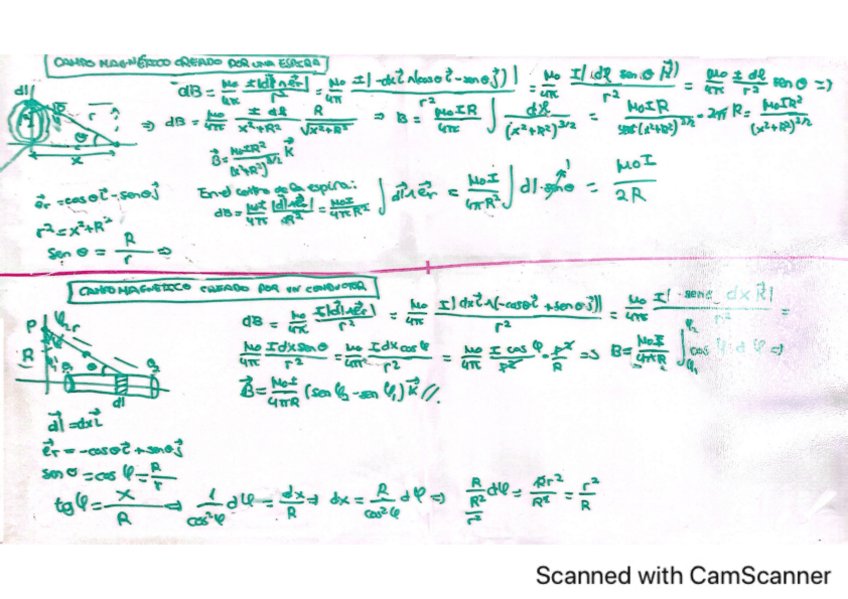 CAMPO MAGNÉTICO CREADO POR UNA ESPIRA
dB = μ₀/4π I|dl⃗∧e⃗r|/r² = μ₀/4π I|-dxi⃗∧(cosθi⃗-senθj⃗)|/r² = μ₀/4π I|(dl senθ k⃗)|/r² = μ₀/4π I dl/r² senθ ⇒
⇒ dB = μ₀/4π I dl/x²+R² R/√x²+R² ⇒ B = μ₀IR/4π ∫ dl/(x²+R²)^3/2 = μ₀IR/(x²+R²)^3/2 · 2π R = μ₀IR²/(x²+R²)^3/2
B⃗ = μ₀IR²/(x²+R²)^3/2 k⃗
dl
r
θ
x
e⃗r = cosθi⃗ - senθj⃗
r² = x²+R²
sen θ = R/r ⇒
En el centro de la espira:
dB = μ₀I/4π |dl⃗∧e⃗r|/R² = μ₀I/4πR² ∫ dl⃗∧e⃗r = μ₀I/4πR² ∫ dl·senθ = μ₀I/2R
CAMPO MAGNÉTICO CREADO POR UN CONDUCTOR
dB = μ₀/4π I|dl⃗∧e⃗r|/r² = μ₀/4π I|dxi⃗∧(-cosθi⃗+senθj⃗)|/r² = μ₀/4π I|senθ dx k⃗|/r² =
μ₀/4π I dx senθ/r² = μ₀/4π I dx cosφ/r² = μ₀/4π I cosφ/r² · r²/R ⇒ B = μ₀I/4πR ∫ cosφ·dφ ⇒
B⃗ = μ₀I/4πR (senφ₂ - senφ₁) k⃗ //.
P
φ₂
r
R
φ₁
θ
θ₂
dl
dl⃗ = dxi⃗
e⃗r = -cosθi⃗ + senθj⃗
senθ = cosφ = R/r
tgφ = x/R → 1/cos²φ dφ = dx/R ⇒ dx = R/cos²φ dφ ⇒ R/(R²/r²) dφ = Rr²/R² = r²/R
Scanned with CamScanner